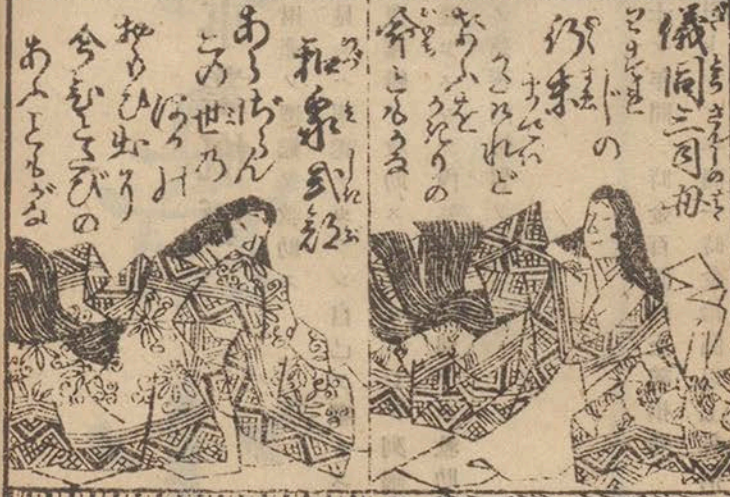 儀同三司母
わすれ
じの
行末
までは
かたければ
けふを
かぎりの
命ともがな
和泉式部
あらざらん
この世の
ほかの
おもひ出に
今ひとたびの
あふこともがな